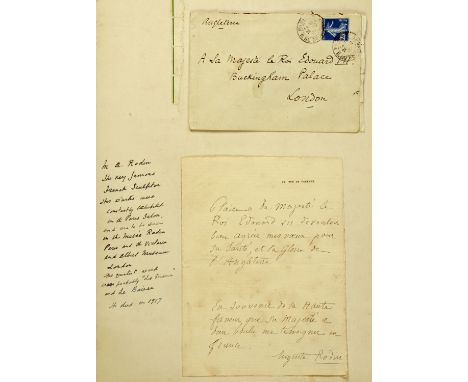 Angleterre
A Sa Majesté le Roi Edouard VII
Buckingham Palace
London
M A Rodin
The very famous
French Sculptor
His works were
constantly exhibited
in the Paris Salon,
and are to be seen
in the Musée Rodin
Paris and the Victoria
and Albert Museum
London
His greatest work
was probably
and Le Baiser
He died in 1917
Majesté le
Roi Edouard
bien mes vœux pour
sa santé et la gloire de
l'Angleterre
En souvenir de la haute
faveur que sa Majesté a
bien voulu me témoigner en
France.
Auguste Rodin